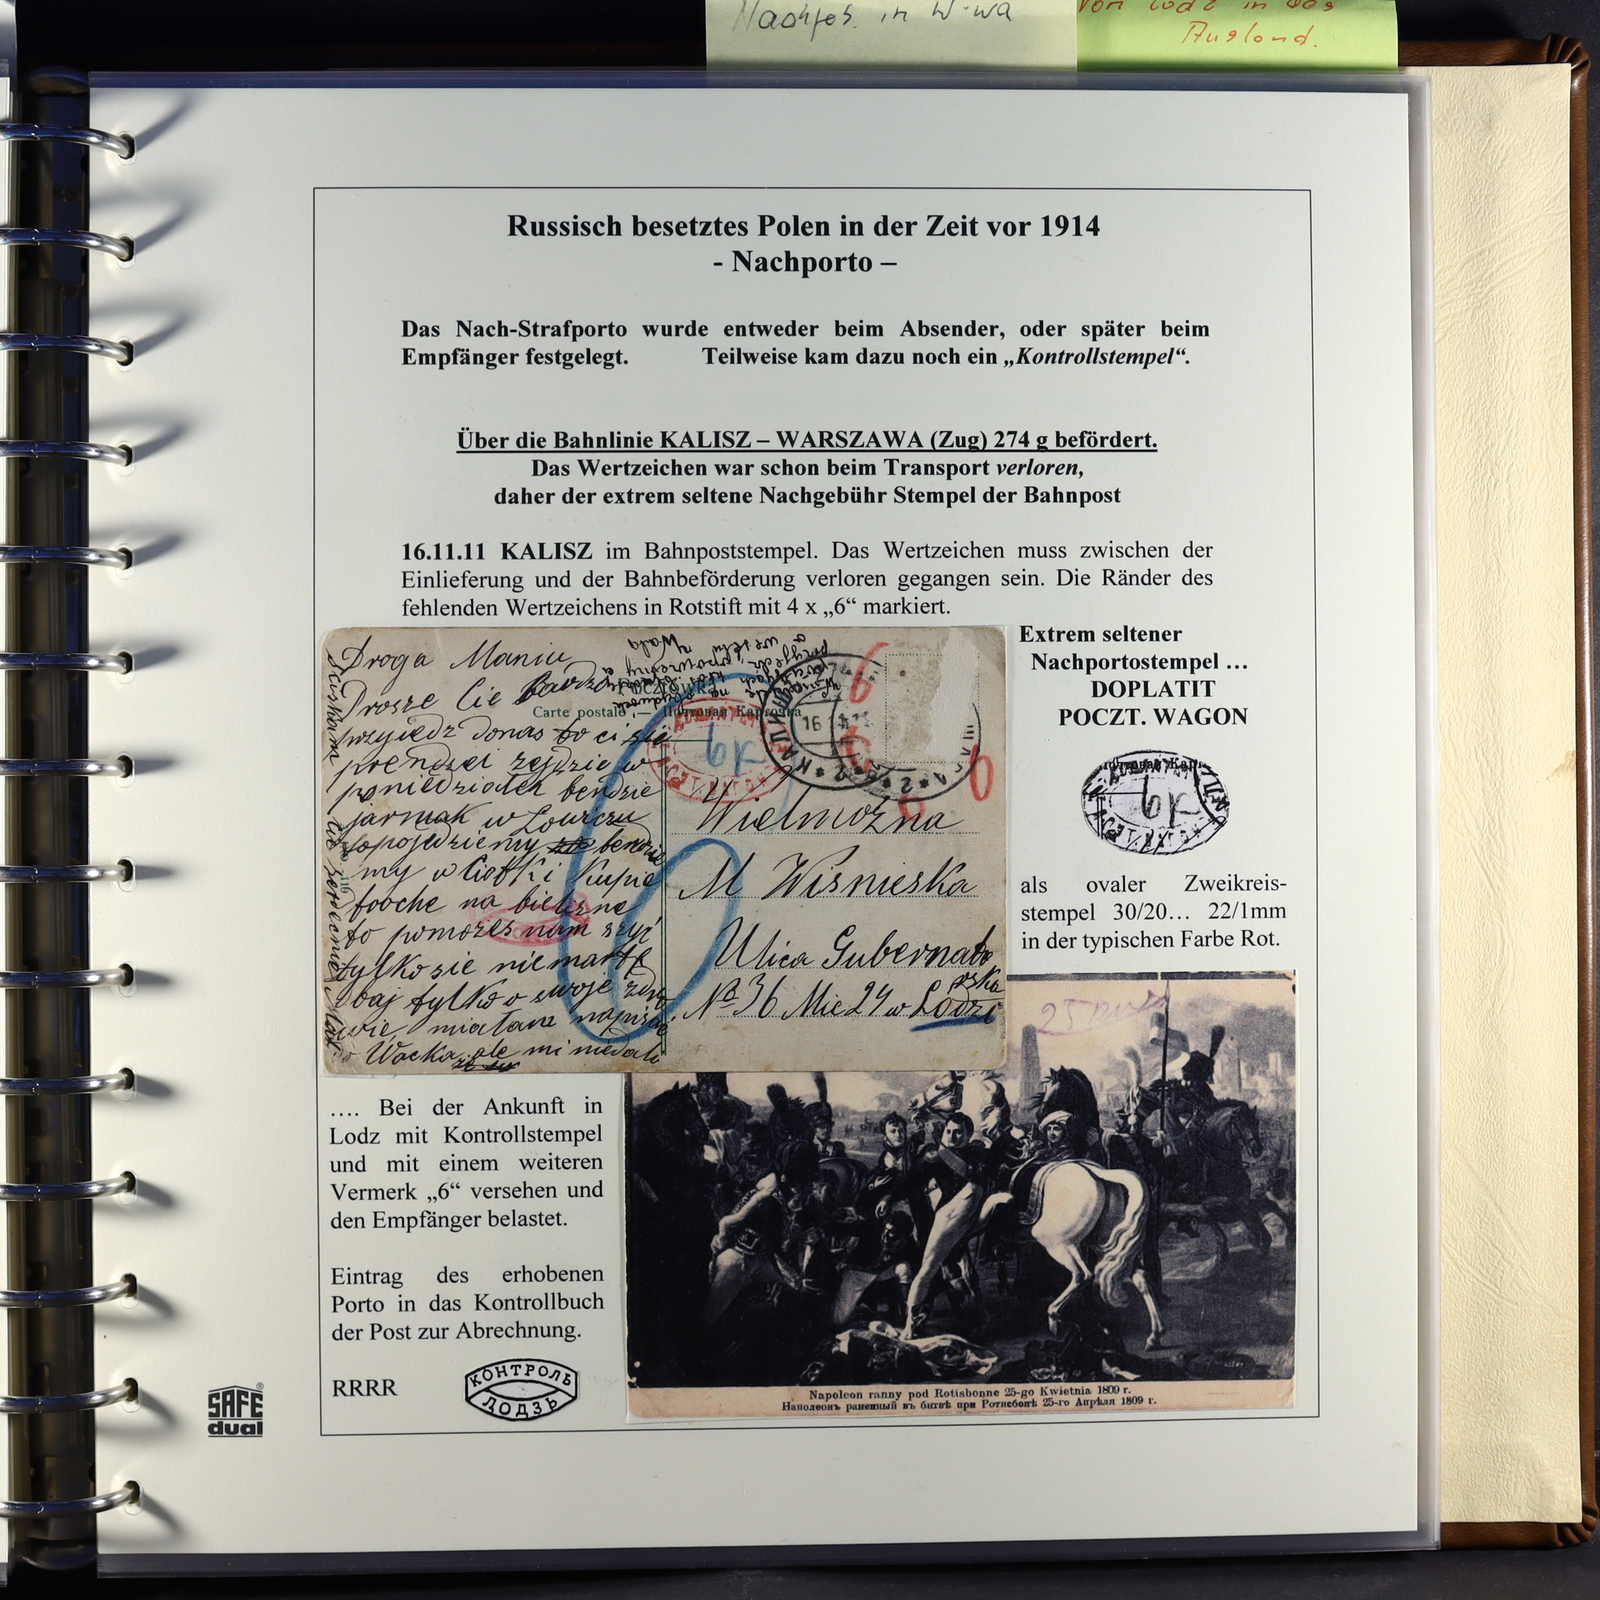 Nachfos. in W-wa
von Lodz in das
Ausland.
Russisch besetztes Polen in der Zeit vor 1914
- Nachporto –
Das Nach-Strafporto wurde entweder beim Absender, oder später beim
Empfänger festgelegt. Teilweise kam dazu noch ein „Kontrollstempel“.
Über die Bahnlinie KALISZ – WARSZAWA (Zug) 274 g befördert.
Das Wertzeichen war schon beim Transport verloren,
daher der extrem seltene Nachgebühr Stempel der Bahnpost
16.11.11 KALISZ im Bahnpoststempel. Das Wertzeichen muss zwischen der
Einlieferung und der Bahnbeförderung verloren gegangen sein. Die Ränder des
fehlenden Wertzeichens in Rotstift mit 4 x „6“ markiert.
Droga Maniu
Prosze Cie bardzo
przyjedz donas to ci sie
prendzei zejdzie w
poniedziałek bendzie
jarmak w Łowiczu
to pojedziemy bendzie
my w Ciotki Kupie
troche na bielizne
to pomozes nam szyć
tylko sie niemartf
baj tylko o swoje zdro
wie miałam napisać
o Wacka ale mi niedali
Carte postale — Почтовая Карточка
6к
16
6
6
6
6
6
Wielmożna
M Wisnieska
Ulica Gubernato
rska
№ 36 Mie 24 w Lodzi
Extrem seltener
Nachportostempel …
DOPLATIT
POCZT. WAGON
als ovaler Zweikreis-
stempel 30/20… 22/1mm
in der typischen Farbe Rot.
…. Bei der Ankunft in
Lodz mit Kontrollstempel
und mit einem weiteren
Vermerk „6“ versehen und
den Empfänger belastet.
Eintrag des erhobenen
Porto in das Kontrollbuch
der Post zur Abrechnung.
RRRR
КОНТРОЛЬ
ЛОДЗЬ
Napoleon ranny pod Rotisbonne 25-go Kwietnia 1809 r.
Наполеонъ раненный въ битвѣ при Ротисбонѣ 25-го Апрѣля 1809 г.
SAFE
dual